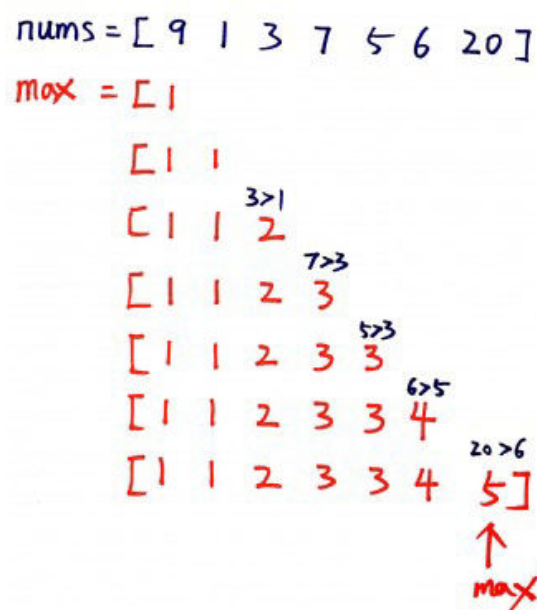 nums = [ 9 1 3 7 5 6 20 ]
max = [ 1
[ 1 1
3>1
[ 1 1 2
7>3
[ 1 1 2 3
5>3
[ 1 1 2 3 3
6>5
[ 1 1 2 3 3 4
20>6
[ 1 1 2 3 3 4 5 ]
↑
max